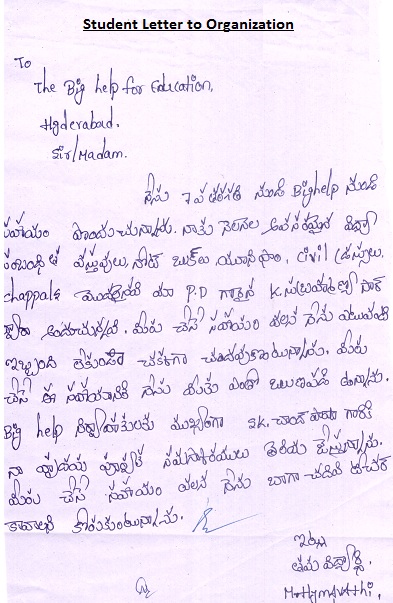 Student Letter to Organization
To
The Big help for Education,
Hyderabad.
Sir/Madam.
నేను 7వ తరగతి నుండి Bighelp నుండి
సహాయం పొందుచున్నాను. నాకు నెలనెల అవసరమైన విద్యా
సంబంధిత వస్తువులు, నోట్ బుక్‌లు యూనిఫాం, civil డ్రస్సులు,
chappals మొదలైనవి మా P.D గారైన K. సుబ్రహ్మణ్యం సార్
ద్వారా అందుచున్నవి. మీరు చేసే సహాయం వలన నేను ఎటువంటి
ఇబ్బంది లేకుండా చక్కగా చదువుకొంటున్నాను. మీరు
చేసే ఈ సహాయానికి నేను మీకు ఎంతో ఋణపడి ఉన్నాను.
Big help నిర్వాహకులకు ముఖ్యంగా SK. చాంద్ పాషా గారికి
నా హృదయ పూర్వక నమస్కారములు తెలియ చేస్తున్నాను.
మీరు చేసే సహాయం వలన నేను బాగా చదివి టీచర్
కావాలని కోరుకుంటున్నాను.
ఇట్లు
తమ విద్యార్థి,